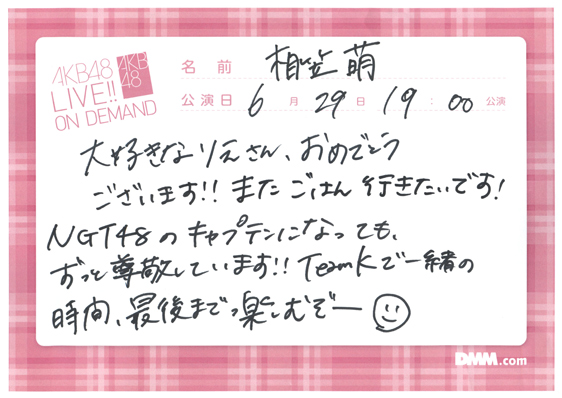 AKB48
LIVE!!
ON DEMAND
AKB
48
名前 相笠萌
公演日 6月29日 19:00公演
大好きなりえさん、おめでとう
ございます!! またごはん行きたいです!
NGT48のキャプテンになっても、
ずっと尊敬しています!! TeamKで一緒の
時間、最後まで楽しむぞー
DMM.com